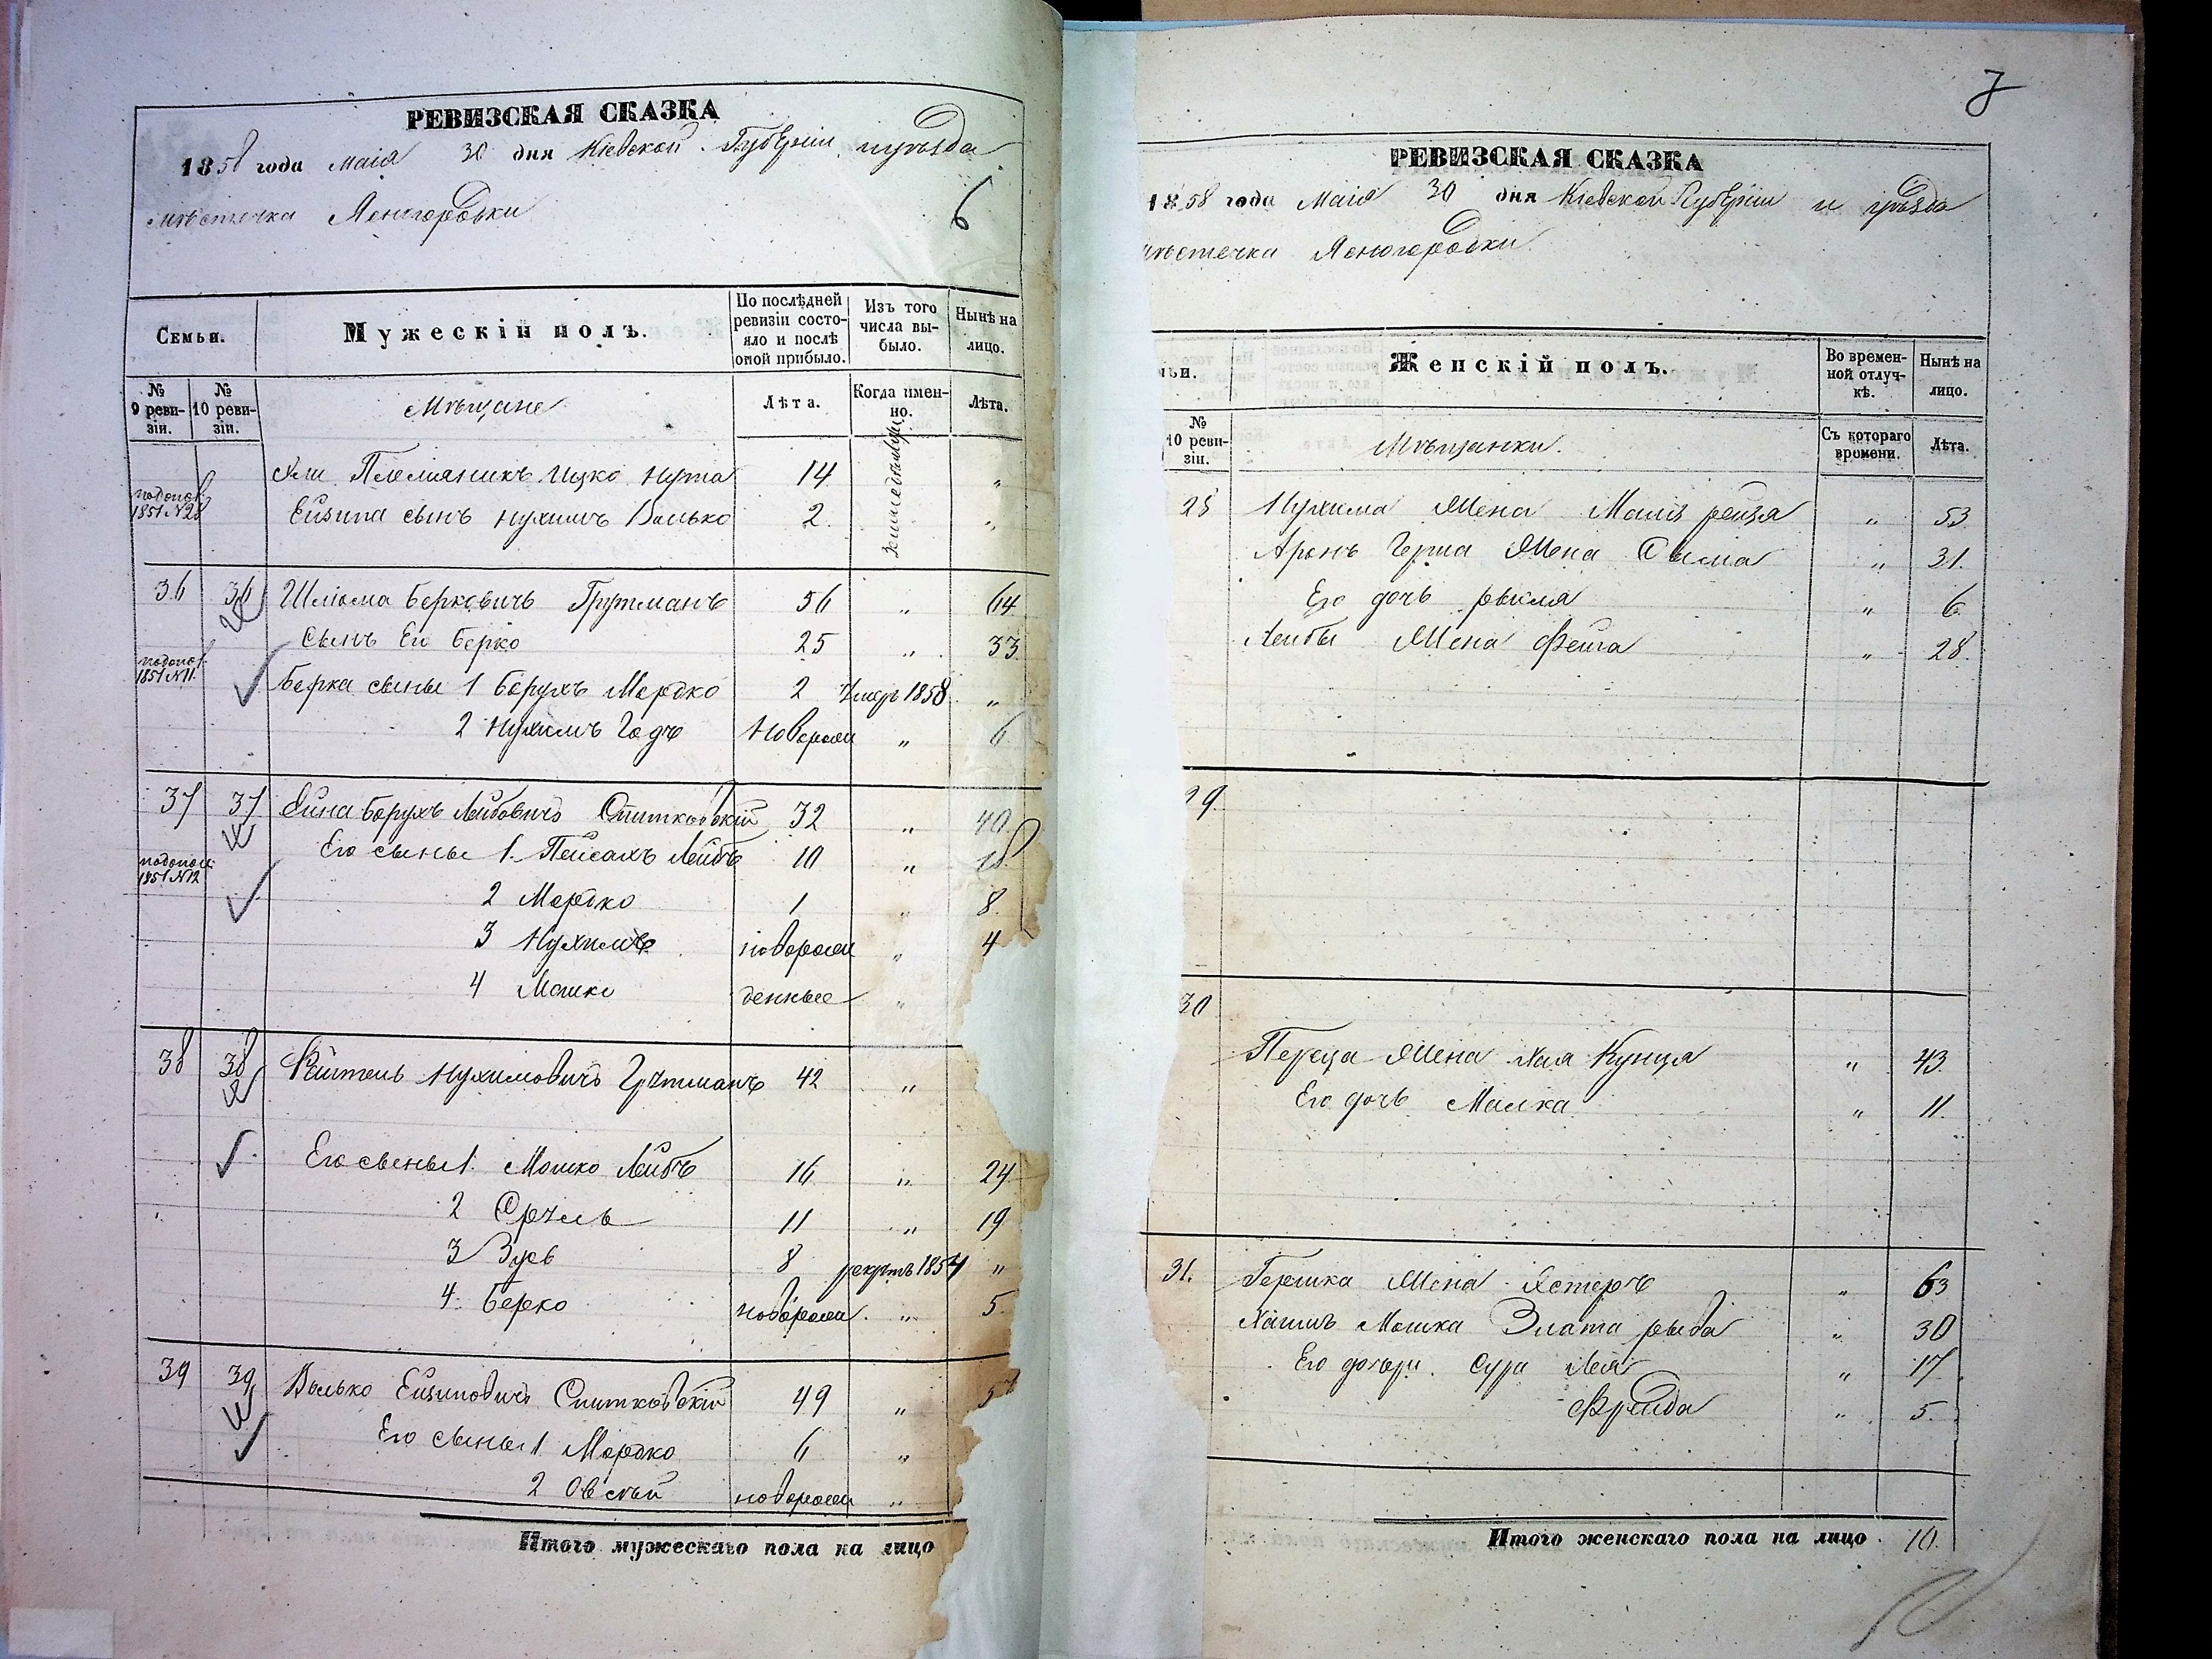 РЕВИЗСКАЯ СКАЗКА
1858 года Маія 30 дня Кіевской Губерніи и уѣзда
мѣстечка Ясногородки
6
Семьи.
Мужескій полъ.
По послѣдней ревизіи состояло и послѣ оной прибыло.
Изъ того числа выбыло.
Нынѣ на лицо.
№ 9 ревизіи.
№ 10 ревизіи.
Мѣщане
Лѣта.
Когда именно.
Лѣта.
Племянникъ Ицко Нута 14 "
1851 №28 сынъ Нухимъ Волько 2 "
36 36 Шліома Берковичъ Грутманъ 56 " 64
сынъ Его Берко 25 " 33
1851 №11 Берка сыны 1 Борухъ Мордко 2 Умеръ 1858 "
2 Нухимъ Годъ Новорож " 6
37 37 Борухъ Лейбовичъ Спитковскій 32 " 40
1851 №12 Его сыны 1. Пейсахъ Лейбъ 10 " 18
2 Мордко 1 " 8
3 Нухимъ новорож " 4
4 Мошко денные "
38 38 Нухимовичъ Грутманъ 42 "
Его сыны 1. Мошко Лейбъ 16 " 24
2 Сруль 11 " 19
3 Зусь 8 рекрутъ 1854 "
4. Берко новорож. " 5
39 39 Волько Спитковскій 49 " 5
Его сыны 1 Мордко 6 "
2 Овсѣй новорож "
Итого мужескаго пола на лицо
7
РЕВИЗСКАЯ СКАЗКА
1858 года Маія 30 дня Кіевской Губерніи и уѣзда
мѣстечка Ясногородки
ьи.
Женскій полъ.
Во временной отлучкѣ.
Нынѣ на лицо.
№ 10 ревизіи.
Мѣщанки.
Съ котораго времени.
Лѣта.
28 Нухима Жена Рейзя " 53
Аронъ Герша Жена Сыма " 31.
Его дочь рыкля " 6
Лейбы Жена Фейга " 28
29.
30
Переца Жена Хая Кунця " 43.
Его дочь Малка " 11.
31. Гершка Жена Эстеръ " 63
Мошка Злата рыва " 30
Его дочери Сура Лея " 17
Фрейда " 5.
Итого женскаго пола на лицо 10.